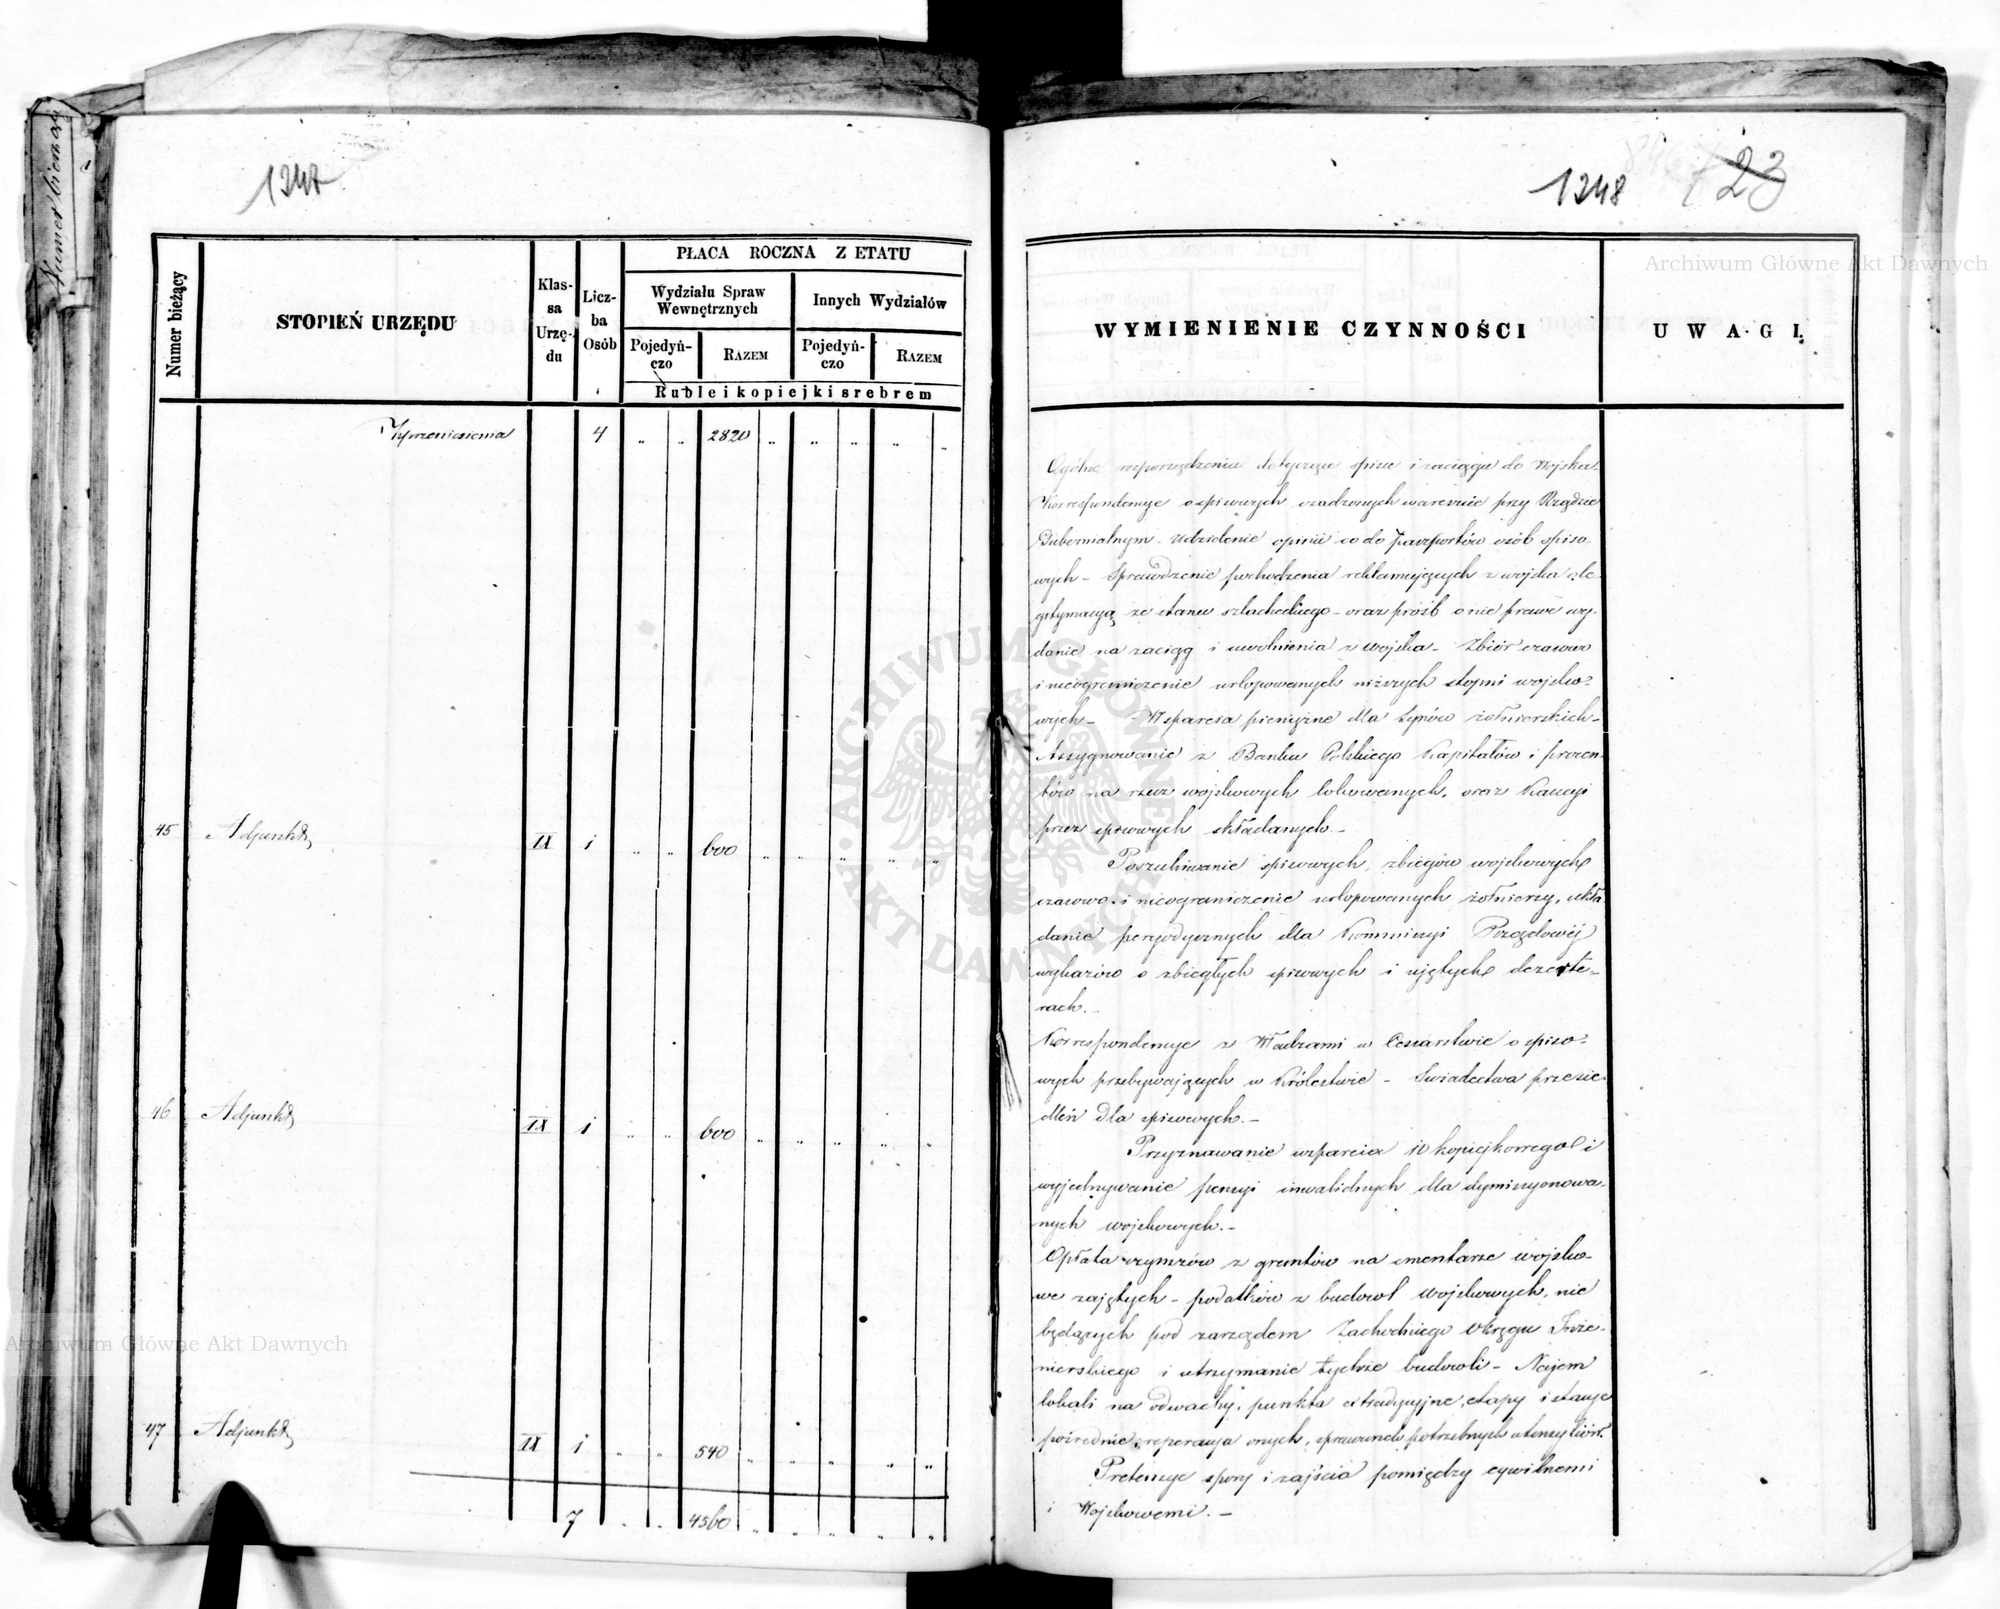 Numer bieżący
1247
Numer bieżący
STOPIEŃ URZĘDU
Klas-
sa
Urzę-
du
Licz-
ba
Osób
PŁACA ROCZNA Z ETATU
Wydziału Spraw
Wewnętrznych
Innych Wydziałów
Pojedyń-
czo
RAZEM
Pojedyń-
czo
RAZEM
Ruble i kopiejki srebrem
Z przeniesienia 4 " " 2820 " " " " "
45 Adjunkt IX 1 " " 600 " " " " "
46 Adjunkt IX 1 " " 600 " " " " "
47 Adjunkt IX 1 " " 540 " " " " "
7 " " 4560 " " " " "
1248
23
WYMIENIENIE CZYNNOŚCI
UWAGI.
Ogólne rozporządzenia dotyczące spisu i zaciągu do Wojska.
Korrespondencye o spisowych osadzonych w areszcie przy Rządzie
Gubernialnym. Udzielenie opinii co do paszportów osób spiso-
wych - Sprawdzenie pochodzenia reklamujących z wojska z le-
gitymacyą ze stanu szlacheckiego - oraz próśb o nie prawe wy-
danie na zaciąg i uwolnienia z wojska - Zbiór czasowo
i nieograniczenie urlopowanych niższych stopni wojsko-
wych - Wsparcia pieniężne dla synów żołnierskich -
Assygnowanie z Banku Polskiego Kapitałów i procen-
tów na rzecz wojskowych lokowanych, oraz Kaucyi
przez spisowych składanych -
Poszukiwanie spisowych, zbiegów wojskowych
czasowo i nieograniczenie urlopowanych żołnierzy, skła-
danie peryodycznych dla Kommissyi Rządowéj
wykazów o zbiegłych spisowych i ujętych dezerte-
rach. -
Korrespondencye z Władzami w Cesarstwie o spiso-
wych przebywających w Królestwie - Świadectwa przesie-
dleń dla spisowych. -
Przyznawanie wsparcia 10 kopiejkowego i
wyjednywanie pensyi inwalidnych dla dymissyonowa-
nych wojskowych. -
Opłata czynszów z gruntów na cmentarze wojsko-
we zajętych - podatków z budowl wojskowych, nie
będących pod zarządem Zachodniego Okręgu Inże-
nierskiego i utrzymanie tychże budowli - Najem
lokali na odwachy, punkta extradycyjne, etapy i stacye
pośrednie, reperacya onych, sprawunek potrzebnych utensyliów.
Pretensye spory i zajścia pomiędzy cywilnemi
i Wojskowemi. -
ARCHIWUM GŁÓWNE AKT DAWNYCH
Archiwum Główne Akt Dawnych
Archiwum Główne Akt Dawnych